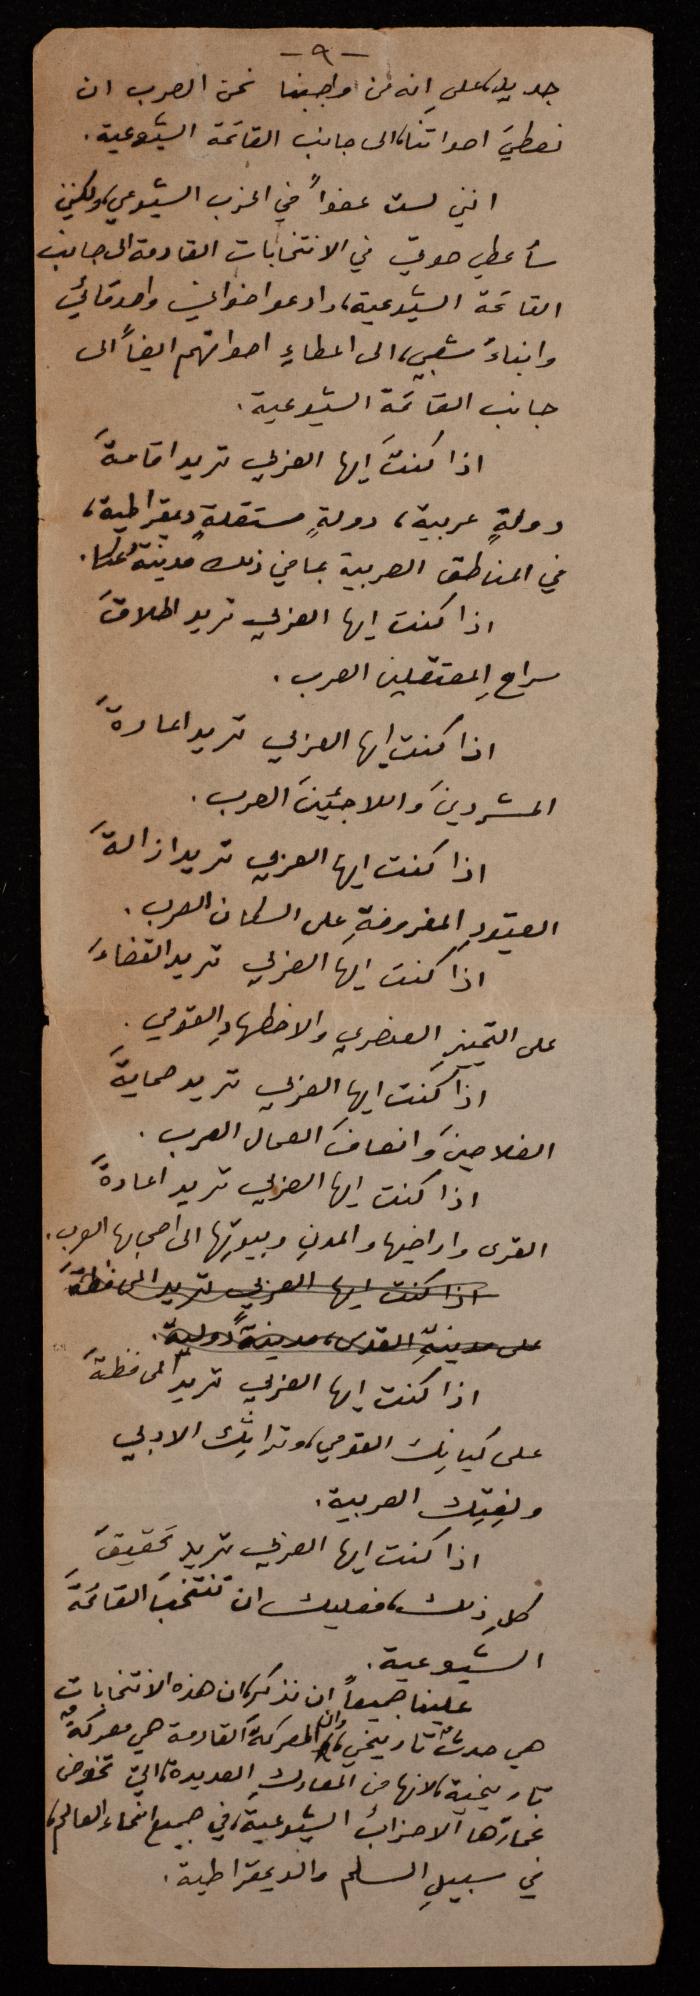 - ٩ -
جديد، على انه من واجبنا نحن العرب ان
نعطيَ اصواتنا، الى جانب القائمة الشيوعية.
انني لست عضواً في الحزب الشيوعي، ولكنني
سأعطي صوتي في الانتخابات القادمة الى جانب
القائمة الشيوعية، وادعو اخواني واصدقائي
وابناءَ شعبي، الى اعطاءِ اصواتهم ايضاً الى
جانب القائمة الشيوعية.
اذا كنتَ ايها العربي تريد اقامةَ
دولةٍ عربية، دولةٍ مستقلةٍ ديمقراطيةٍ،
في المناطق العربية بما في ذلك مدينة عكا.
اذا كنت ايها العربي تريد اطلاقَ
سراحِ المعتقلين العرب.
اذا كنت ايها العربي تريد اعادةَ
المشردينَ واللاجئينَ العرب.
اذا كنت ايها العربي تريد ازالةَ
القيودِ المفروضةِ على السكان العرب.
اذا كنت ايها العربي تريد القضاءَ
على التمييزِ العنصري والاضطهادِ القومي.
اذا كنت ايها العربي تريد حمايةَ
الفلاحينَ وانصافَ العمال العرب.
اذا كنت ايها العربي تريد اعادةَ
القرى واراضيها والمدنِ وبيوتِها الى اصحابها العرب.
اذا كنت ايها العربي تريد المحافظةَ
على مدينةِ القدس، مدينةً دوليةً.
اذا كنت ايها العربي تريد المحافظةَ
على كيانِك القومي، وتراثِك الادبي
ولغتِك العربية.
اذا كنت ايها العربي تريد تحقيقَ
كلِ ذلك، فعليك ان تنتخبَ القائمةَ
الشيوعية.
علينا جميعاً ان نذكر، ان هذه الانتخابات
هي حدثٌ تاريخي، وان المعركةَ القادمة هي معركةٌ
تاريخية، لانها من المعاركِ العديدة، التي تخوض
غمارَها الاحزابُ الشيوعية، في جميع انحاء العالم،
في سبيلِ السلم والديمقراطية.